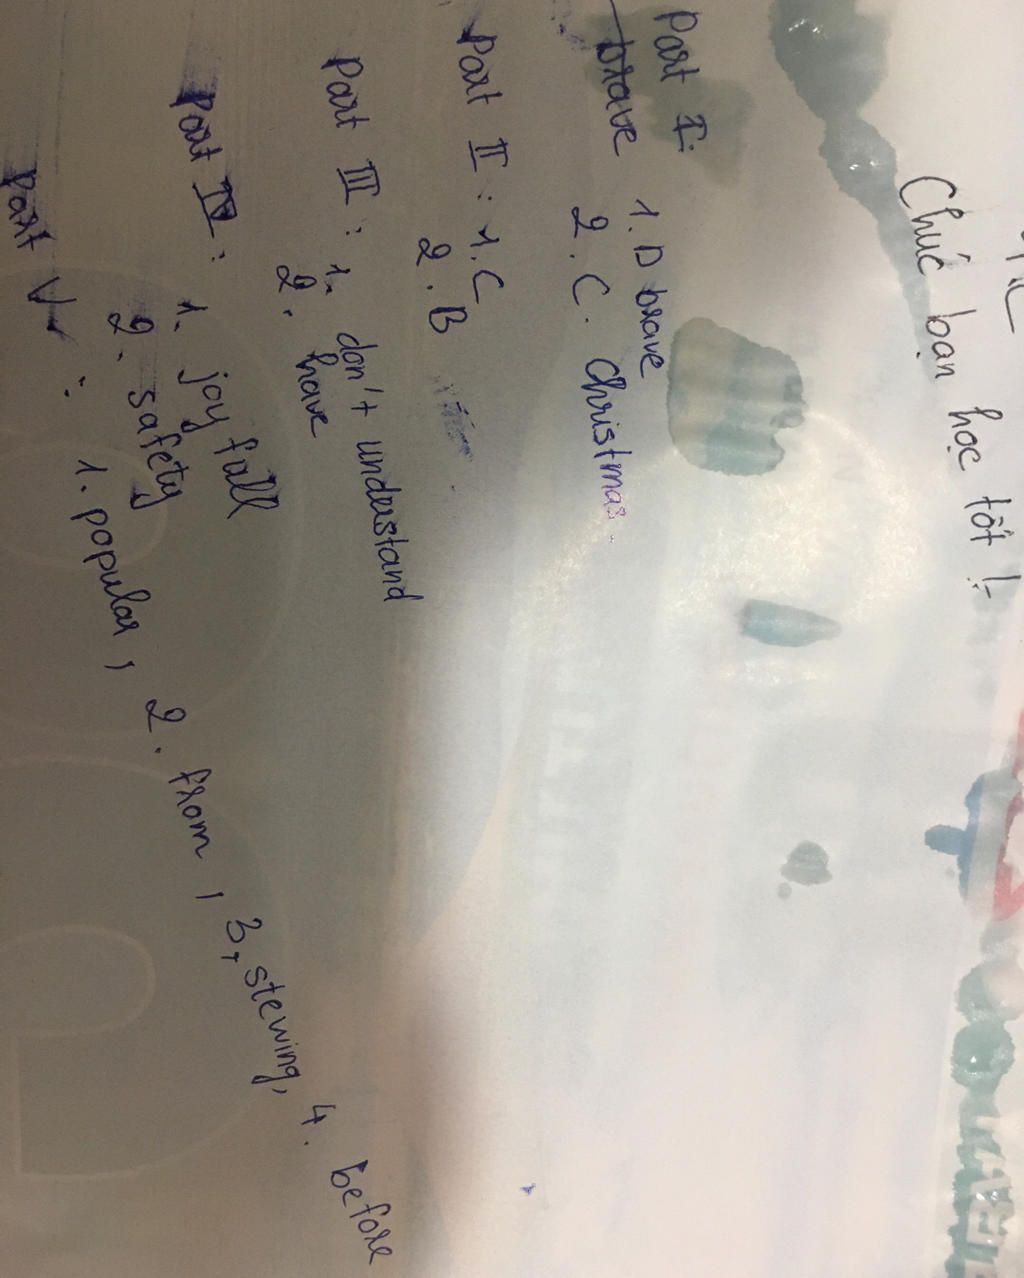 Chúc bạn học tốt !
Part I:
brave 1. D brave
2. C. Christmas
Part II : 1. C
2. B
Part III : 1. don't understand
2. have
Part IV : 1. joy full
2. safety
Part V : 1. popular, 2. from, 3, stewing, 4. before